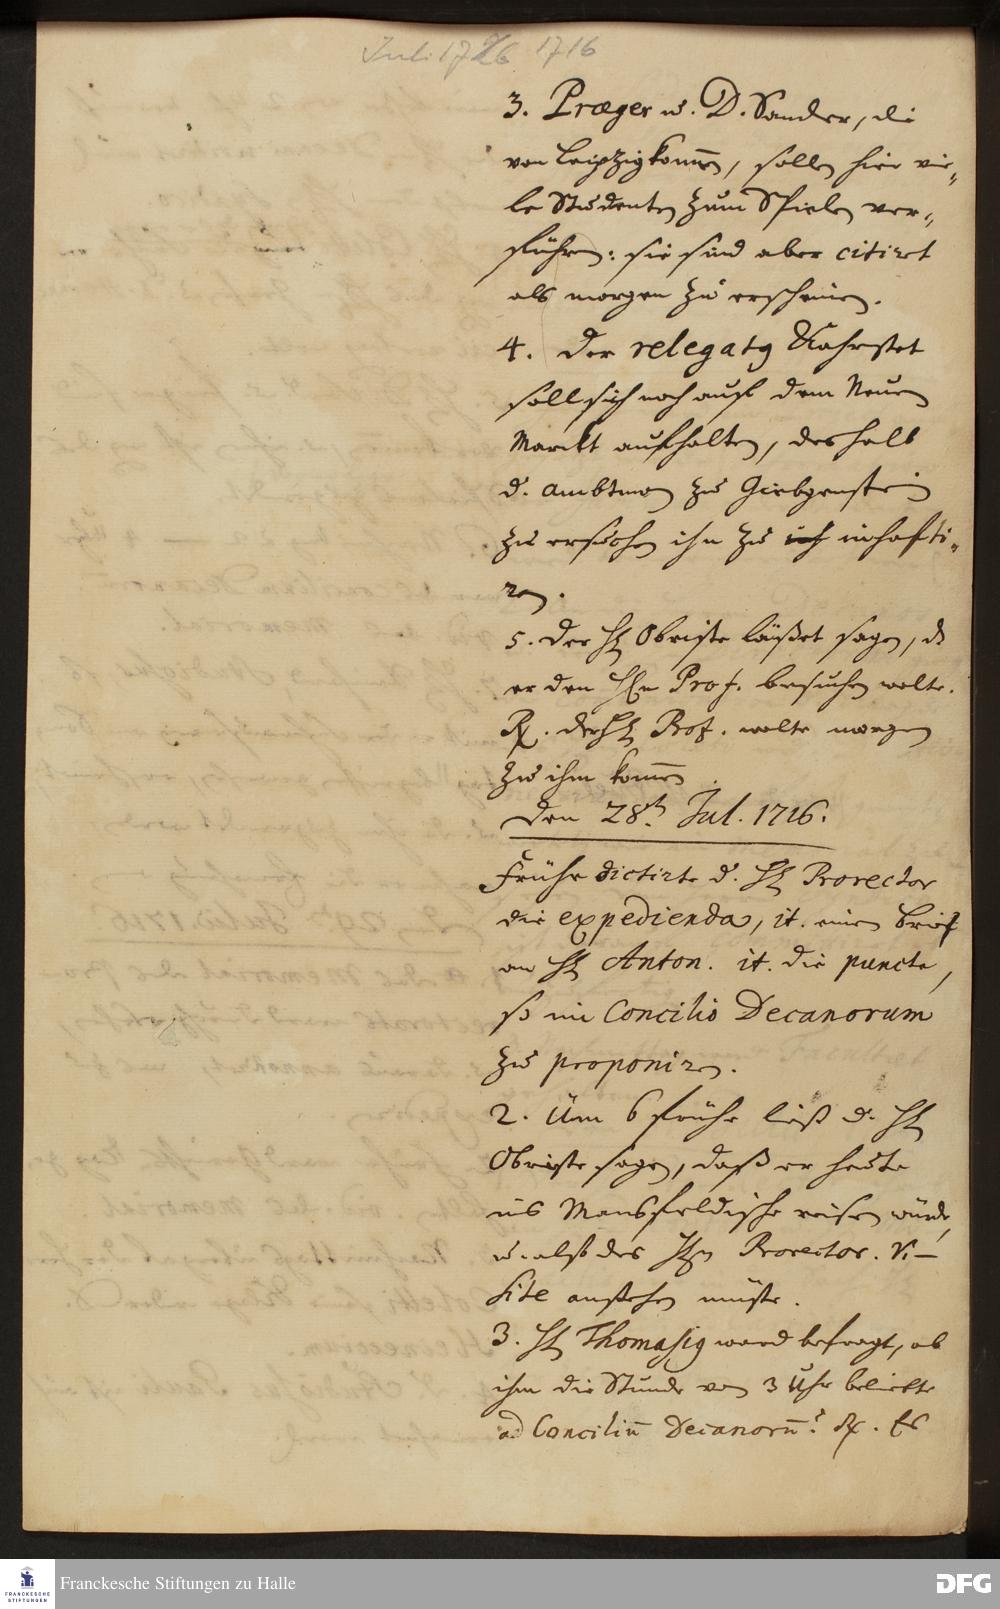 Juli 1726 1716
3. Præger u. D. Sander, die
von Leipzig kom̅en, sollen hier vie-
le Studenten zum Spielen ver-
führen: sie sind aber citiret
als morgen zu erscheinen.
4. Der relegatq Kahrstet
soll sich noch auf dem Neuen
Marckt aufhalten, deshalb
d. Ambtman zu Giebgenstein
zu ersuchen ihn zu ich inhafti-
ren.
5. Der H Obriste läßet sagen, d
er den HEn Prof. besuchen wolte.
Rx. der H Prof. wolte morgen
zu ihm kom̅en.
Den 28t. Jul. 1716.
Frühe dictirte d. H Prorector
die expedienda, it. einen Brief
an H Anton. it. die puncte,
so im Concilio Decanorum
zu proponiren.
2. Um 6 frühe ließ d. H
Obriste sagen, daß er heute
ins Mansfeldische reisen würde,
u. alß des HEn Prorector. Vi-
site anstehen müste.
3. H Thomasiq ward befragt, ob
ihm die Stunde von 3 Uhr beliebte
ad Conciliu̅ Decanoru̅? Rx. Es
Franckesche Stiftungen zu Halle
FRANCKESCHE
STIFTUNGEN
DFG